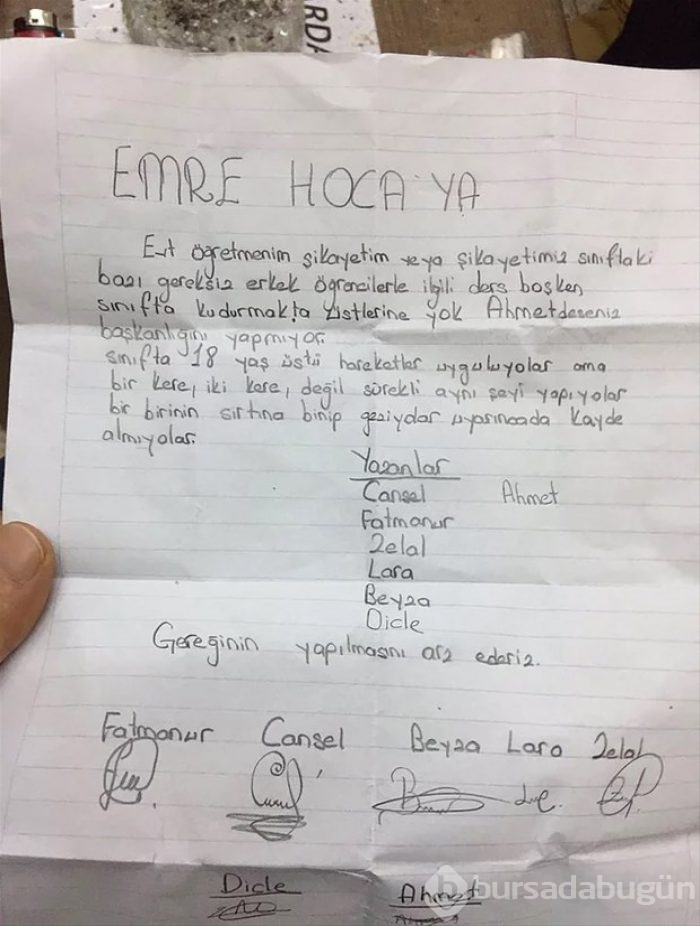 RDA
EMRE HOCA'YA
Evt öğretmenim şikayetim veya şikayetimiz sınıftaki
bazı gereksiz erkek öğrencilerle ilgili ders boşken
sınıfta kudurmakta üstlerine yok Ahmetdeseniz
başkanlığını yapmıyor.
sınıfta 18 yaş üstü hareketler uyguluyolar ama
bir kere, iki kere, değil sürekli aynı şeyi yapıyolar
bir birinin sırtına binip geziyolar uyarıncada kayde
almıyolar.
Yazanlar
Cansel Ahmet
Fatmanur
Zelal
Lara
Beyza
Dicle
Gereğinin yapılmasını arz ederiz.
Fatmanur Cansel Beyza Lara Zelal
Dicle Ahmet
bursadabugün